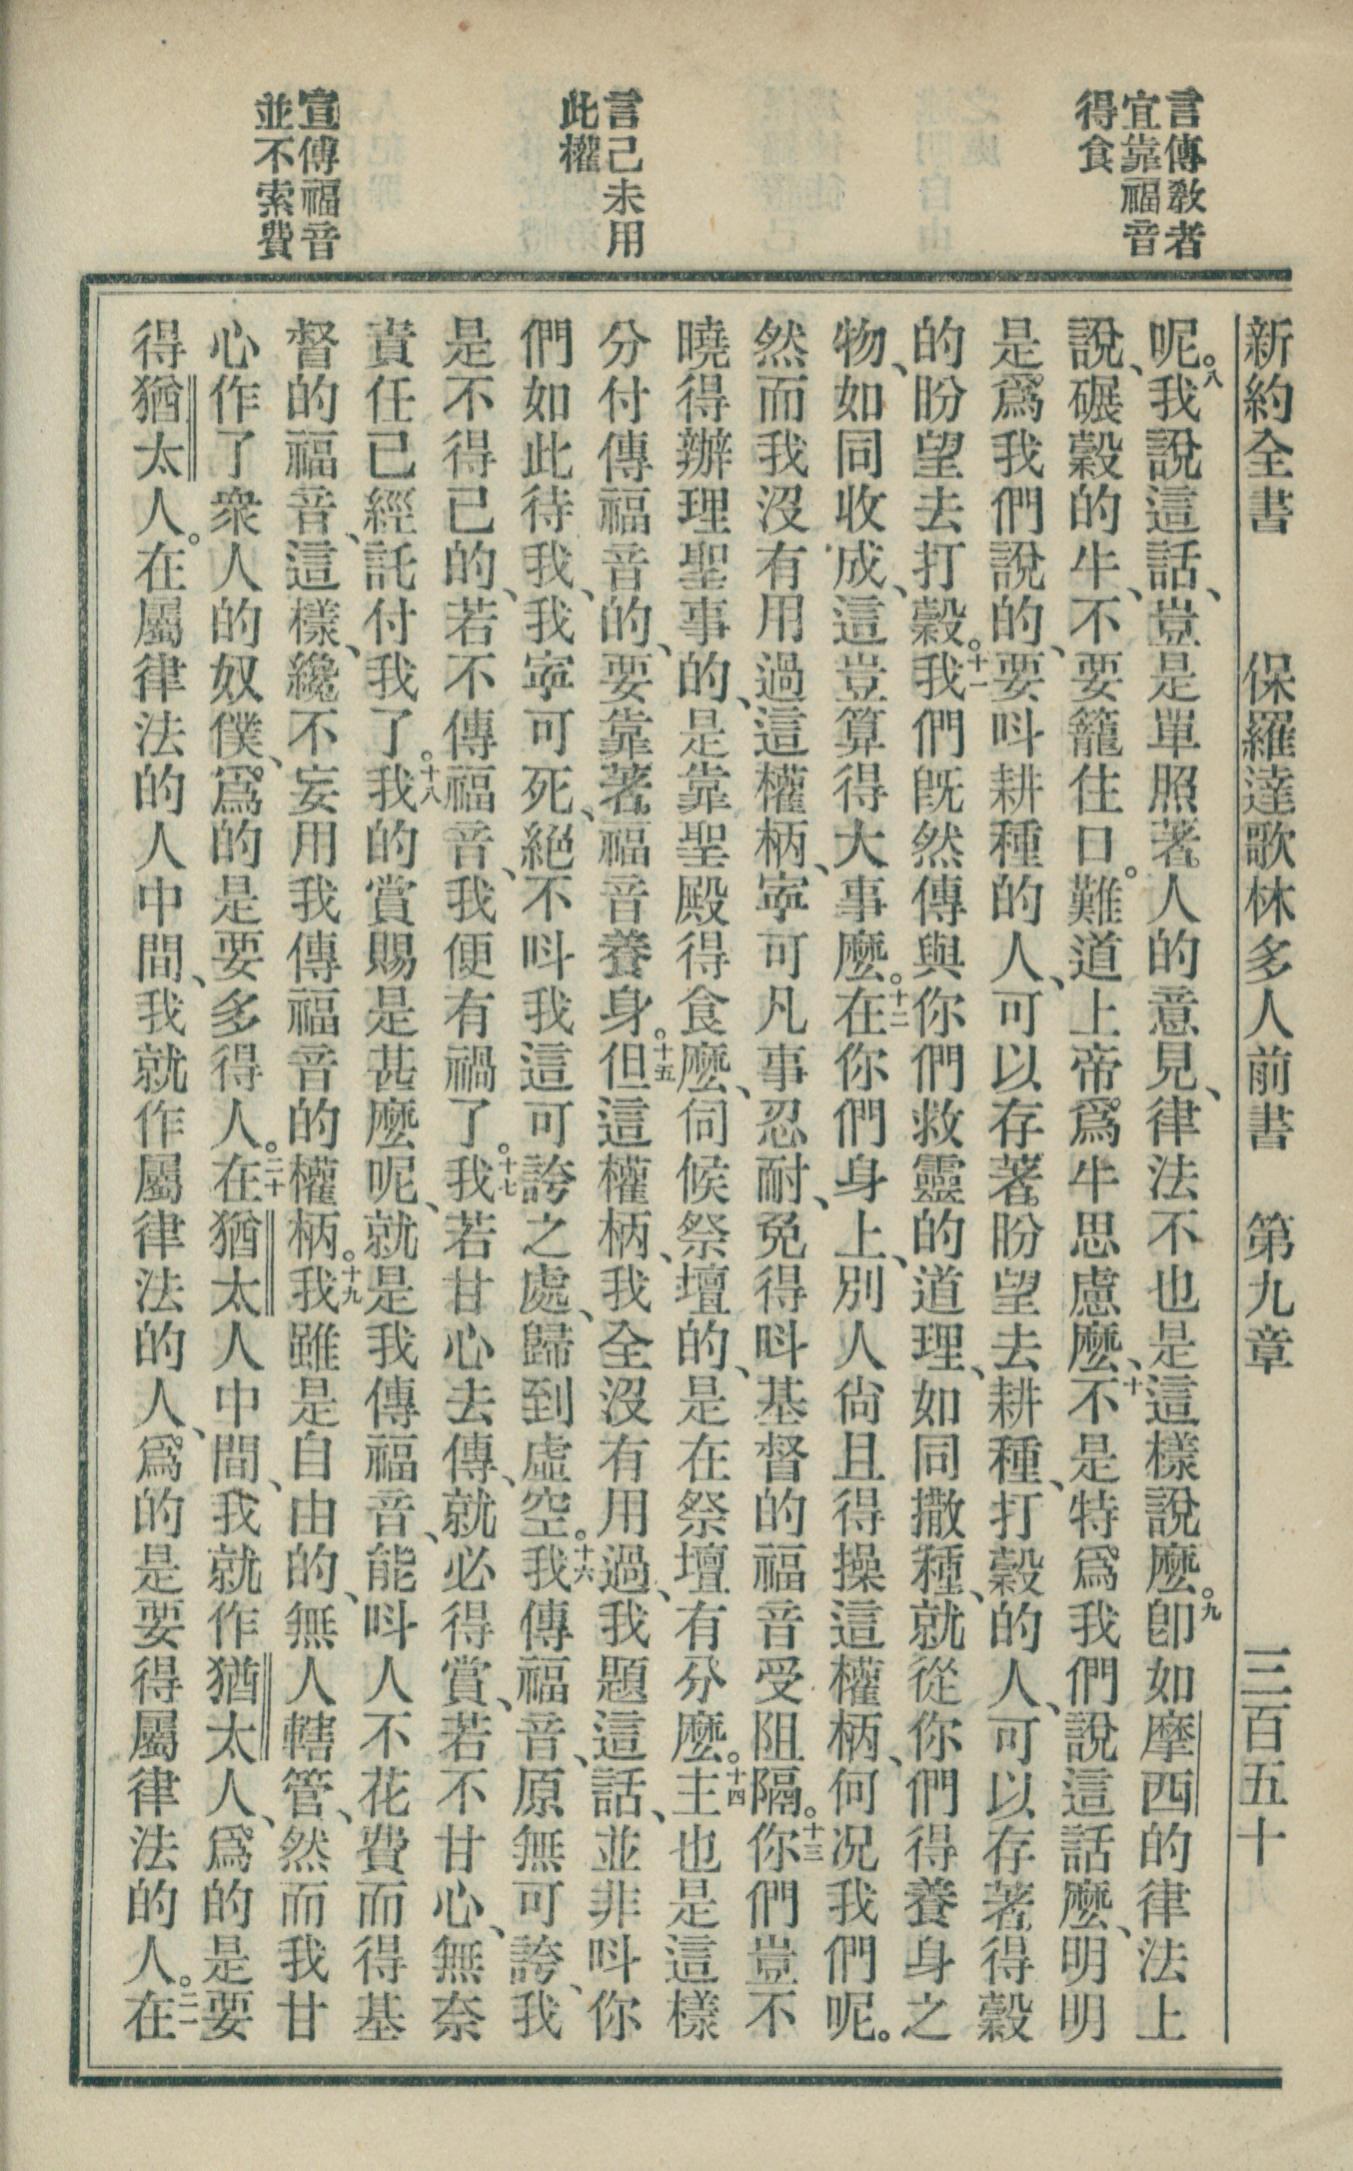 言傳教者
宜靠福音
得食
言己未用
此權
宣傳福音
並不索費
新約全書 保羅達歌林多人前書 第九章 三百五十
呢。八我說這話、豈是單照著人的意見、律法不也是這樣說麽。九卽如摩西的律法上
說、碾穀的牛、不要籠住口。難道上帝爲牛思慮麽、十不是特爲我們說這話麽、明明
是爲我們說的、要呌耕種的人、可以存著盼望去耕種、打穀的人、可以存著得穀
的盼望去打穀。十一我們旣然傳與你們救靈的道理、如同撒種、就從你們得養身之
物、如同收成、這豈算得大事麽。十二在你們身上、別人尙且得操這權柄、何况我們呢。
然而我沒有用過這權柄、寧可凡事忍耐、免得呌基督的福音受阻隔。十三你們豈不
曉得辦理聖事的、是靠聖殿得食麽、伺候祭壇的、是在祭壇有分麽。十四主也是這樣
分付傳福音的、要靠著福音養身。十五但這權柄、我全沒有用過、我題這話、並非呌你
們如此待我、我寧可死、絕不呌我這可誇之處、歸到虛空。十六我傳福音、原無可誇、我
是不得已的、若不傳福音、我便有禍了。十七我若甘心去傳、就必得賞、若不甘心、無奈
責任已經託付我了。十八我的賞賜是甚麽呢、就是我傳福音、能呌人不花費而得基
督的福音、這樣、纔不妄用我傳福音的權柄。十九我雖是自由的、無人轄管、然而我甘
心作了衆人的奴僕、爲的是要多得人。二十在猶太人中間、我就作猶太人、爲的是要
得猶太人。在屬律法的人中間、我就作屬律法的人、爲的是要得屬律法的人。二一在